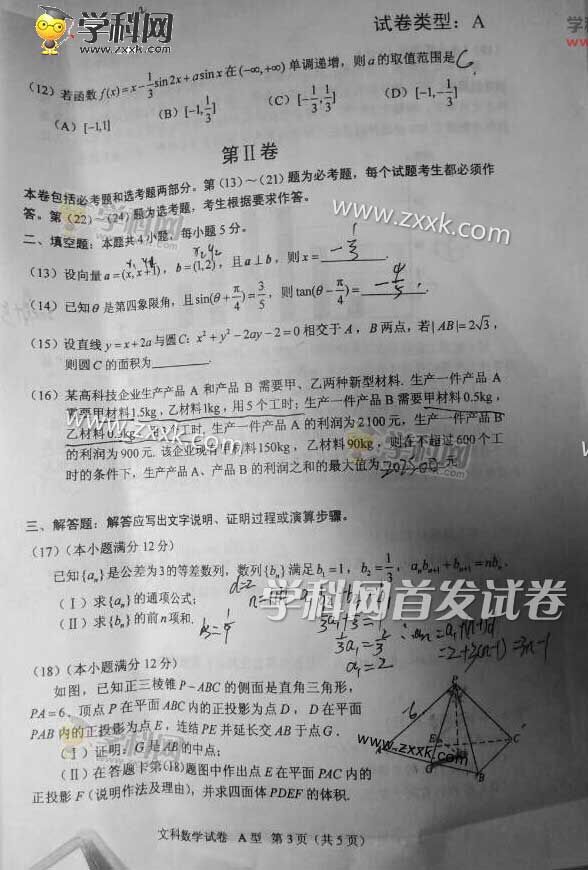 学科网
www.zxxk.com
试卷类型：A
(12) 若函数 f(x)=x-1/3 sin2x+a sinx 在 (-∞,+∞) 单调递增，则 a 的取值范围是 C
(A) [-1,1] (B) [-1,1/3] (C) [-1/3,1/3] (D) [-1,-1/3]
第Ⅱ卷
本卷包括必考题和选考题两部分。第（13）～（21）题为必考题，每个试题考生都必须作
答。第（22）～（24）题为选考题，考生根据要求作答。
学科网
www.zxxk.com
二、填空题：本题共4小题，每小题5分。
(13) 设向量 a=(x, x+1)，b=(1,2)，且 a⊥b，则 x=
(14) 已知θ是第四象限角，且 sin(θ+π/4)=3/5，则 tan(θ-π/4)= -4/5 .
(15) 设直线 y=x+2a 与圆C: x²+y²-2ay-2=0 相交于 A，B 两点，若|AB|=2√3，
则圆 C 的面积为________.
(16) 某高科技企业生产产品 A 和产品 B 需要甲、乙两种新型材料. 生产一件产品 A
需要甲材料1.5kg，乙材料1kg，用5个工时；生产一件产品 B 需要甲材料0.5kg，
乙材料0.3kg，用3个工时，生产一件产品 A 的利润为2100元，生产一件产品 B
的利润为900元. 该企业现有甲材料150kg，乙材料90kg，则在不超过600个工
时的条件下，生产产品A、产品B的利润之和的最大值为 元.
www.zxxk.com
学科网
三、解答题：解答应写出文字说明、证明过程或演算步骤。
(17)（本小题满分12分）
已知{aₙ}是公差为3的等差数列，数列{bₙ}满足 b₁=1，b₂=1/3，aₙbₙ₊₁+bₙ₊₁=nbₙ.
(Ⅰ) 求{aₙ}的通项公式；
(Ⅱ) 求{bₙ}的前n项和.
学科网首发试卷
1/3a₁=2/3
a₁=2
=2+3(n-1)=3n-1
(18)（本小题满分12分）
如图，已知正三棱锥 P-ABC 的侧面是直角三角形，
PA=6，顶点 P 在平面 ABC 内的正投影为点 D，D 在平面
PAB 内的正投影为点 E，连结PE并延长交 AB 于点G.
(Ⅰ) 证明：G是AB的中点；
(Ⅱ) 在答题卡第(18)题图中作出点 E 在平面 PAC 内的
正投影 F（说明作法及理由），并求四面体 PDEF 的体积.
P
6
A
E
G
B
C
www.zxxk.com
学科网
文科数学试卷 A型 第3页（共5页）